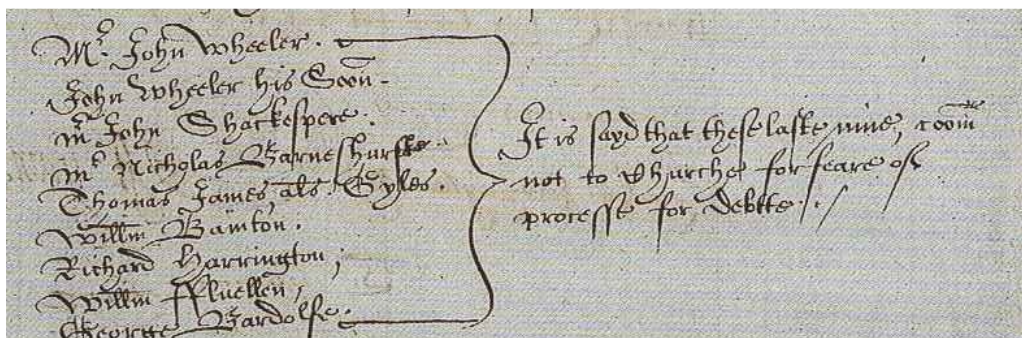 Mr. John Wheeler.
John Wheeler his Soon.
Mr John Shackespere.
Mr Nicholas Barneshurste.
Thomas James, als Gyles.
Willm Bainton.
Richard Harrington,
Willm ffluellen,
George Bardolfe.
It is sayd that these laste nine, coom
not to Churche for feare of
processe for Debtte.